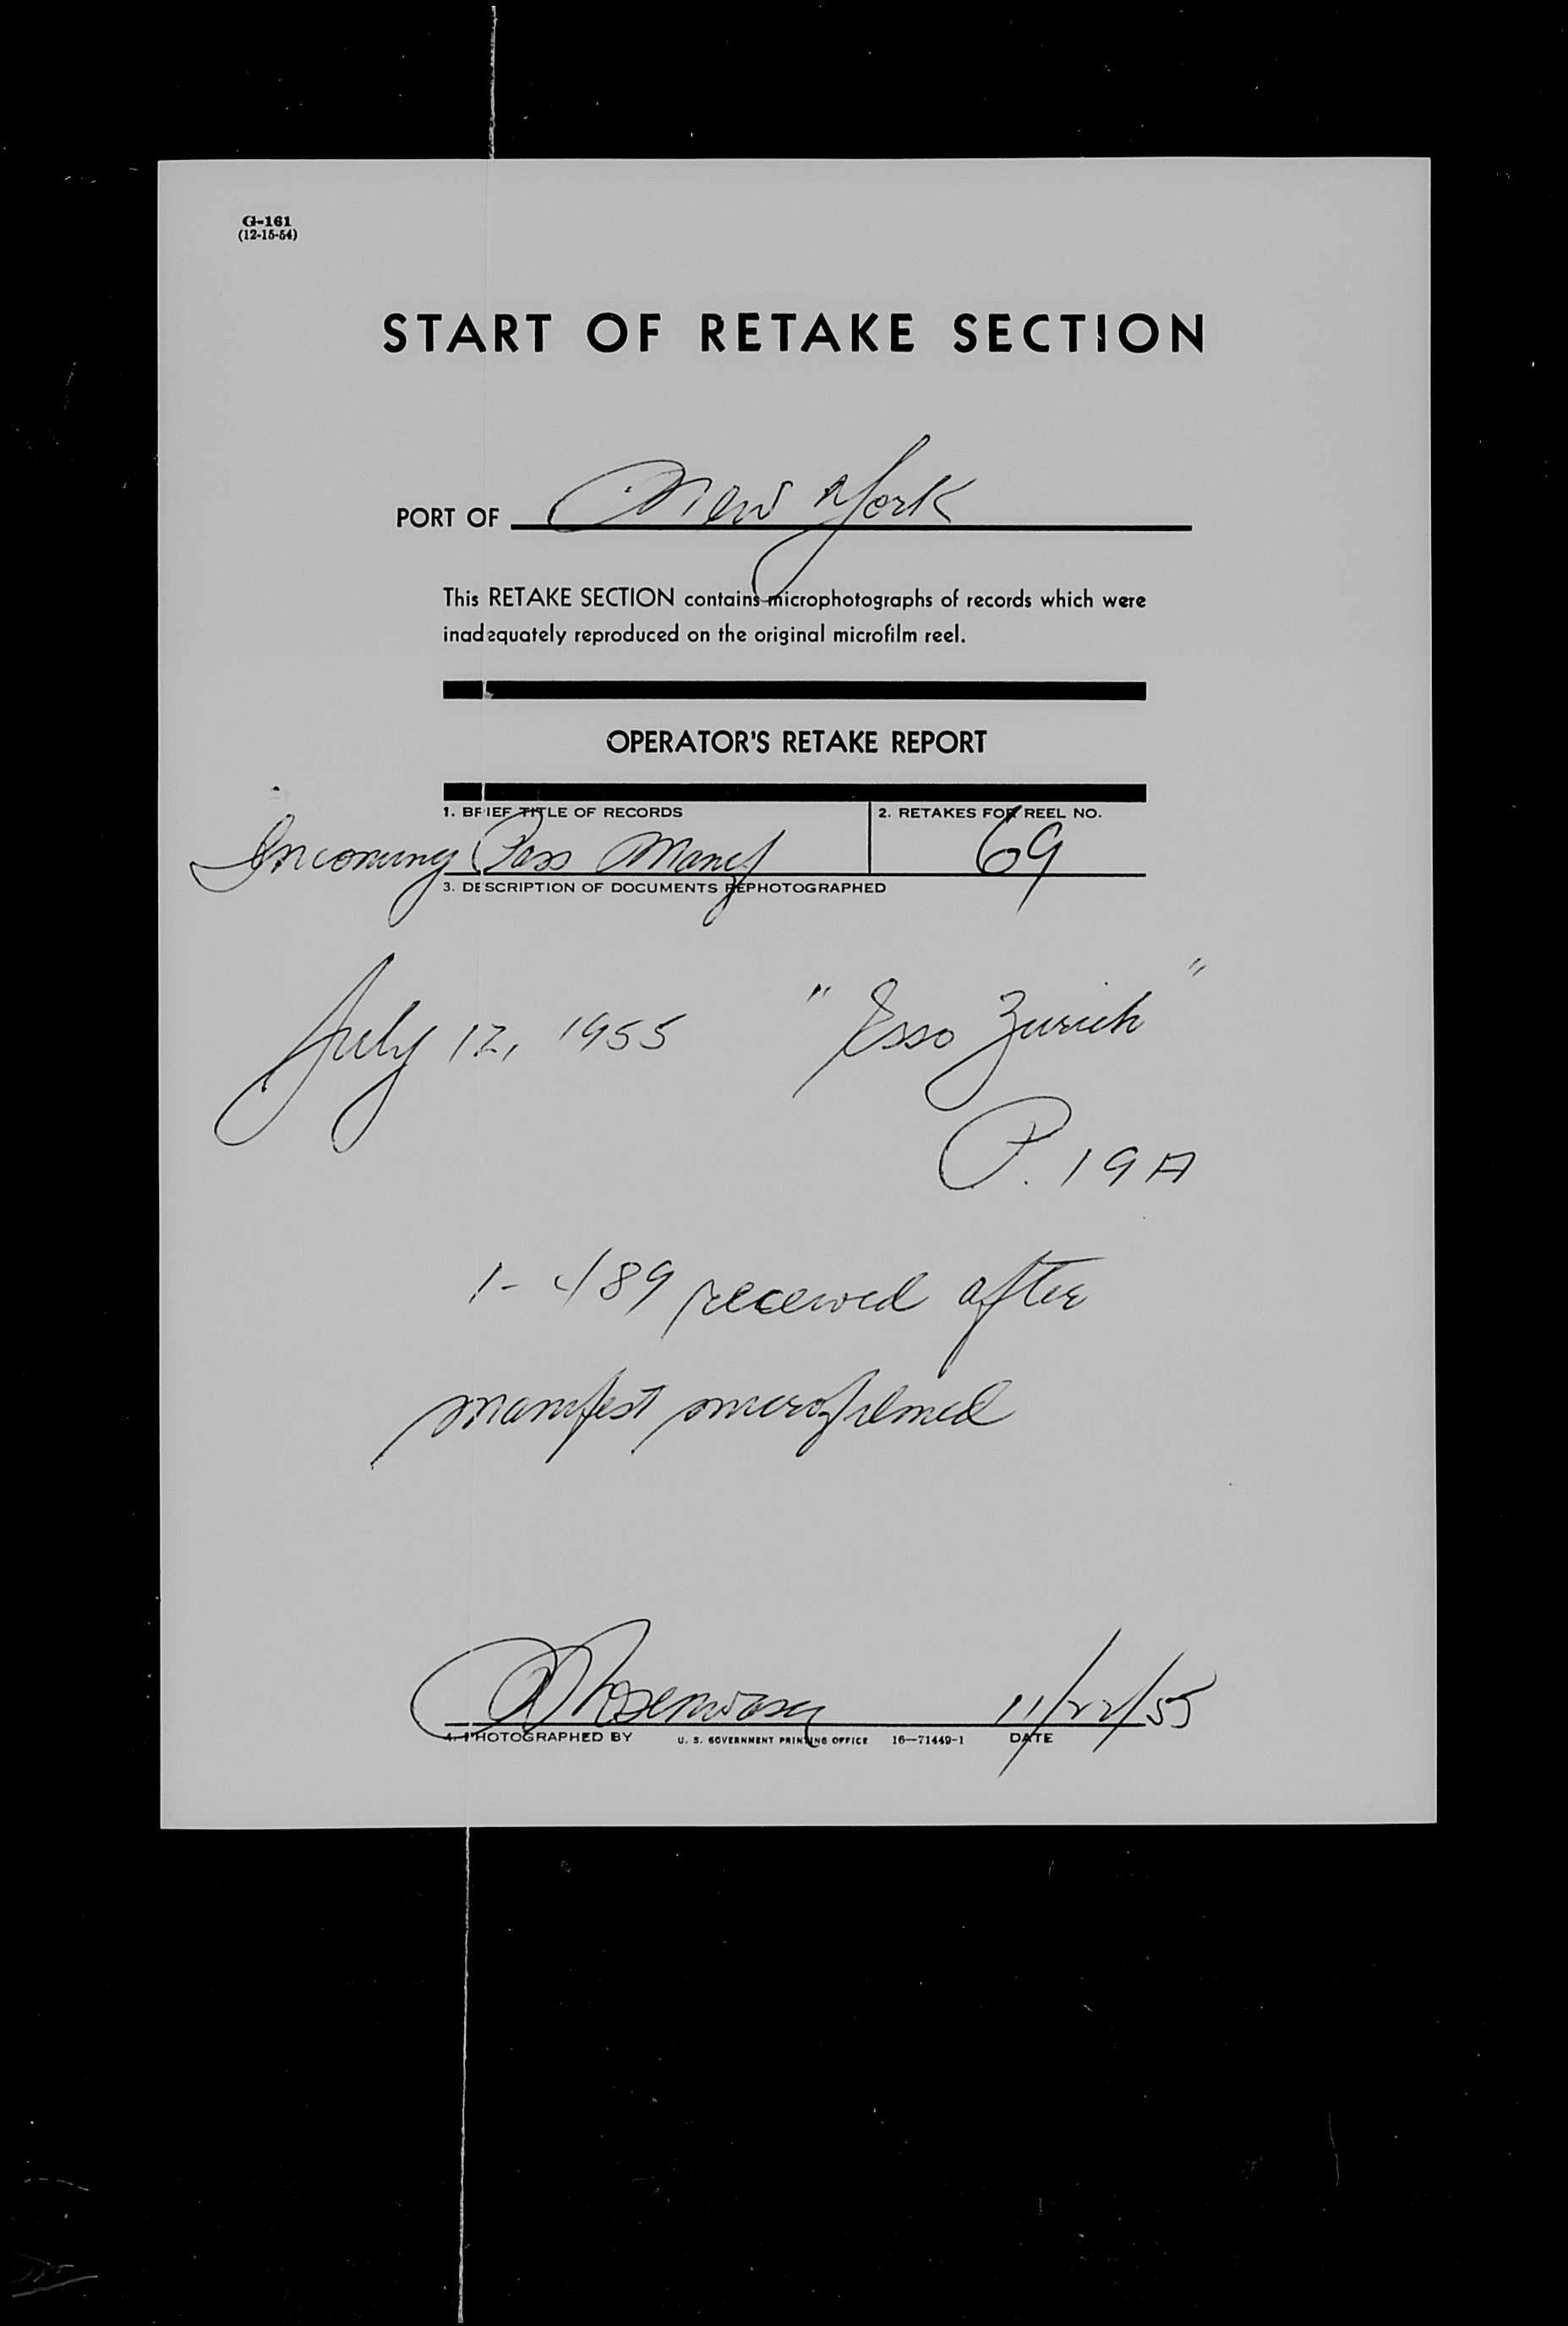 G-161
(12-15-54)
START OF RETAKE SECTION
PORT OF New York
This RETAKE SECTION contains microphotographs of records which were
inadequately reproduced on the original microfilm reel.
OPERATOR'S RETAKE REPORT
1. BRIEF TITLE OF RECORDS 2. RETAKES FOR REEL NO.
Incoming Pass Manif 69
3. DESCRIPTION OF DOCUMENTS REPHOTOGRAPHED
July 12, 1955 "Esso Zurich"
P. 19A
1- 489 received after
manifest microfilmed
11/22/55
4. PHOTOGRAPHED BY U. S. GOVERNMENT PRINTING OFFICE 16—71449-1 DATE